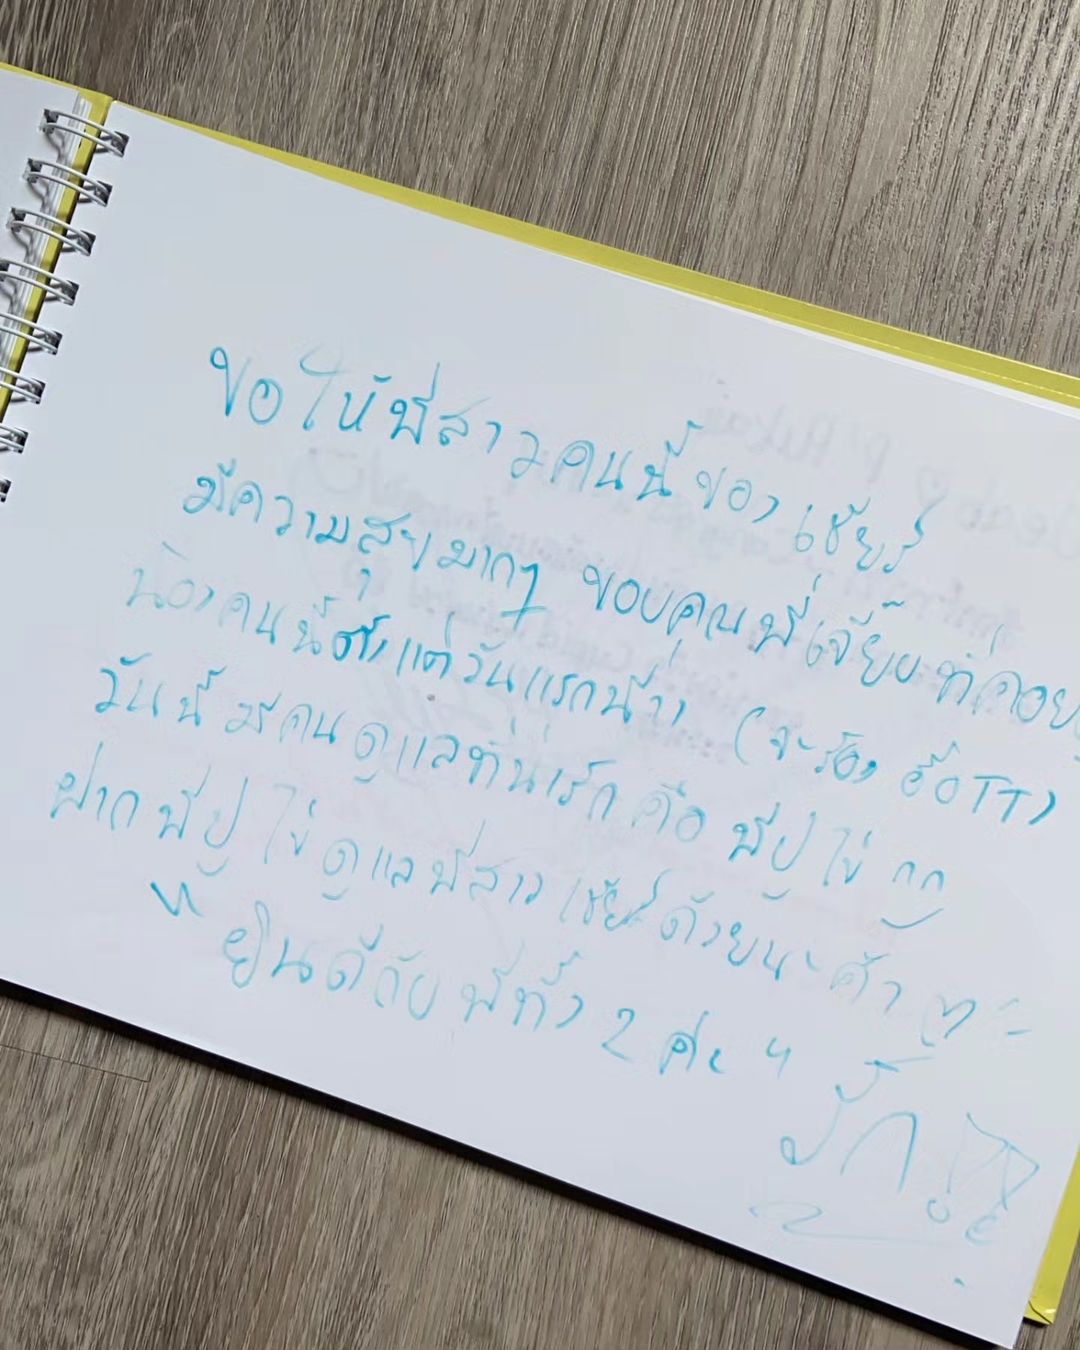 ขอให้พี่สาวคนนี้ของเชียร์
มีความสุขมากๆ ขอบคุณพี่เจี๊ยบที่คอย
น้องคนนี้ตั้งแต่วันแรกน้าา (จะร้อง อื้อTT)
วันนี้มีคนดูแลที่น่ารัก คือ พี่ปูไข่ กก
ฝากพี่ปูไข่ดูแลพี่สาวเชียร์ด้วยนะค้า
"ยินดีกับพี่ทั้ง 2 ค่ะ"
รัก